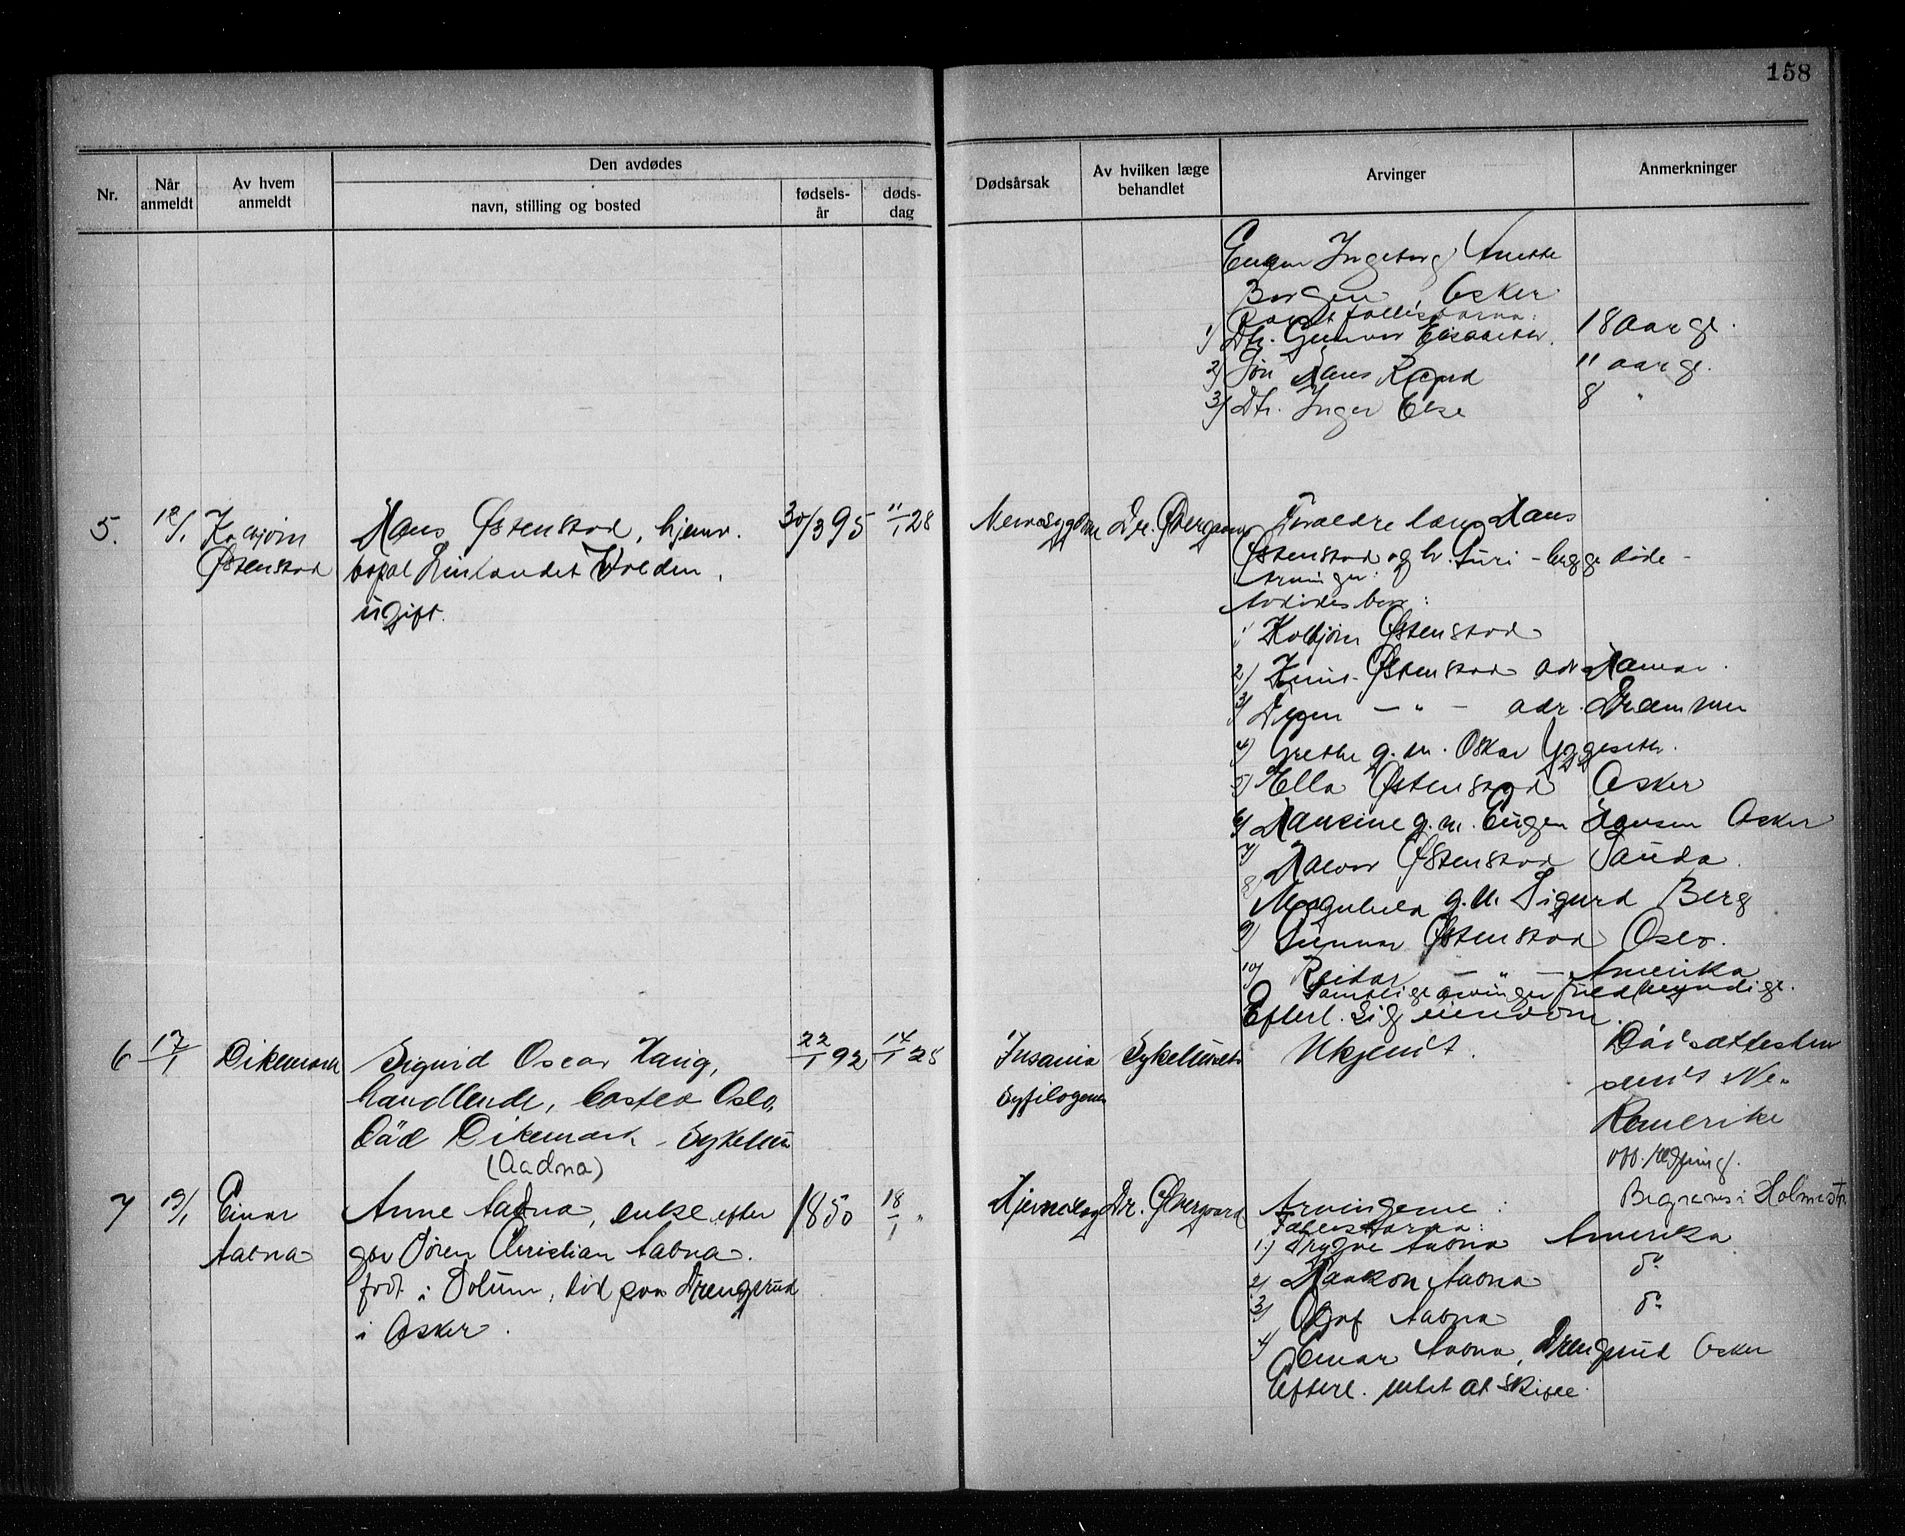 158
Nr.
Når anmeldt
Av hvem anmeldt
Den avdødes
navn, stilling og bosted
fødsels-år
døds-dag
Dødsårsak
Av hvilken læge behandlet
Arvinger
Anmerkninger
Ingeborg Anette
Borgen, Asker
1) Dtr. Gunvor 18 aar gl.
2) Søn Hans 11 aar gl.
3) Dtr. Inger Else 8 "
5. 12/1 Kolbjørn Østenstad
Hans Østenstad, hjemv.
ugift.
30/3 95
11/1 28
Dr. Østergaard
Forældre Hans
Østenstad og h. Siri - begge døde -
Arvinger:
1) Kolbjørn Østenstad
2) Østenstad adr Hamar.
3) - " - adr. Drammen
4) Grethe g. m. Oskar Yggeseth.
5) Ella Østenstad Asker
6) Hansine g. m. Eugen Hansen Asker
7) Halvor Østenstad Sauda.
8) Magnhild g. m. Sigurd Berg
9) Gunnar Østenstad Oslo.
10) Reidar - " - Amerika
Samtlige arvinger fuldmyndige.
Efterl. eiendom.
6 17/1 Dikemark
Sigurd Oscar Haug,
handlende, bosted Oslo,
død Dikemark Sykehus
22/1 92
14/1 28
Insania
syfilogenes
Sykehusets
Ukjendt.
Dødsattesten
sendt Ne.
Romerike
(Aadna)
7 19/1 Einar
Aabna
Anne Aabna, enke efter
gbr Søren Christian Aabna.
født i Solum, død paa Drengsrud
i Asker.
1850
18/1 "
Hjerneslag
Dr. Østergaard
Arvingerne:
Fællesbarna:
1.) Trygve Aabna Amerika
2) Haakon Aabna do
3) Olaf Aabna do
4) Einar Aabna, Drengsrud Asker
Efterl. intet at skifte.
Begraves i Holmestr.